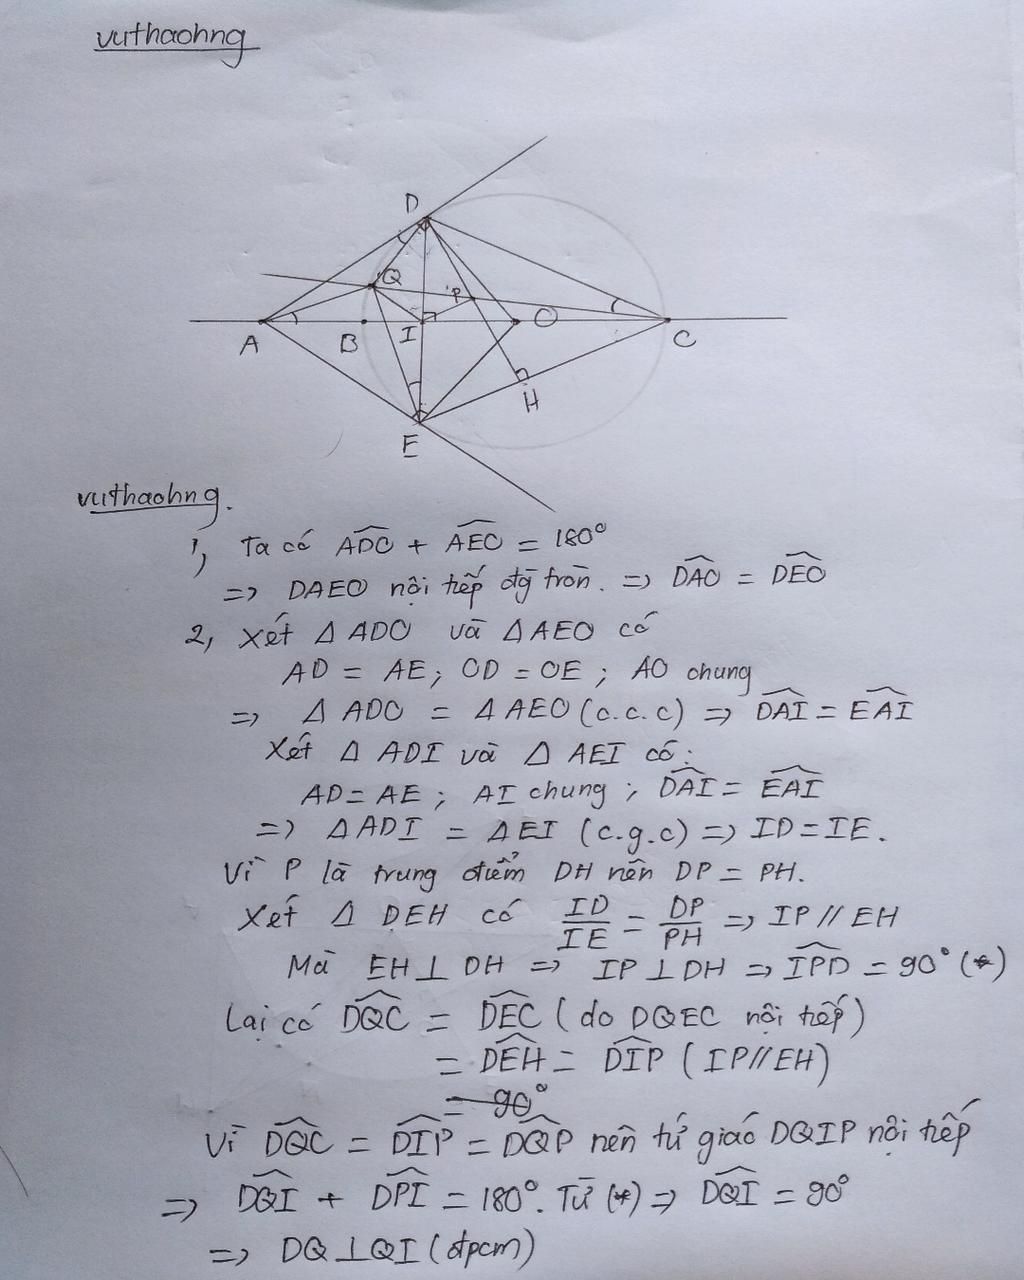 vuthaohng
D
Q
P
A
B
I
O
C
H
E
vuthaohng.
1, Ta có \widehat{ADO} + \widehat{AEO} = 180°
=> DAEO nội tiếp đg tròn. => \widehat{DAO} = \widehat{DEO}
2, Xét Δ ADO và Δ AEO có
AD = AE; OD = OE ; AO chung
=> Δ ADO = Δ AEO (c.c.c) => \widehat{DAI} = \widehat{EAI}
Xét Δ ADI và Δ AEI có:
AD = AE ; AI chung ; \widehat{DAI} = \widehat{EAI}
=> Δ ADI = Δ EI (c.g.c) => ID = IE.
Vì P là trung điểm DH nên DP = PH.
Xét Δ DEH có ID/IE = DP/PH => IP // EH
Mà EH ⊥ DH => IP ⊥ DH => \widehat{IPD} = 90° (*)
Lại có \widehat{DQC} = \widehat{DEC} ( do DQEC nội tiếp)
= \widehat{DEH} = \widehat{DIP} ( IP // EH)
= 90°
Vì \widehat{DQC} = \widehat{DIP} = \widehat{DQP} nên tứ giác DQIP nội tiếp
=> \widehat{DQI} + \widehat{DPI} = 180°. Từ (*) => \widehat{DQI} = 90°
=> DQ ⊥ QI (đpcm)